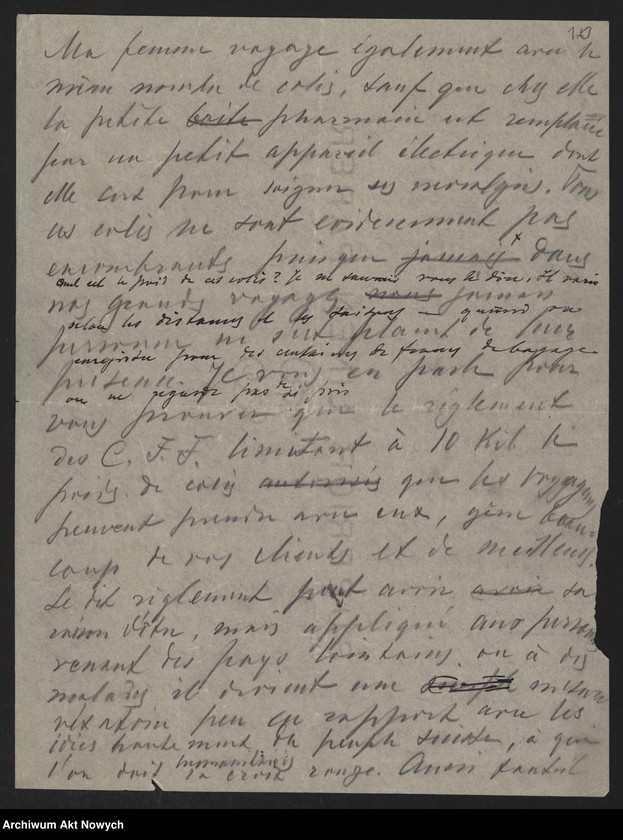 10
Ma femme voyage également avec le
même nombre de colis, sauf que chez elle
la petite boite pharmacie est remplacée
par un petit appareil électrique dont
elle sert pour soigner ses nevralgies. Tous
ces colis ne sont evidemment pas
encombrants puisque jamais x dans
quel est le poids de ces colis? Je ne saurais vous le dire, il varie
nos grands voyages nous jamais
selon les distances et les saisons — quand on
personne ne s'est plaint de leur
enregistre pour des centaines de francs de bagage
présence. Je vous en parle pour
on ne regarde pas de si près
vous prouver que le règlement
des C. F. F. limitant à 10 Kil le
poids de colis autorisés que les voyageurs
peuvent prendre avec eux, gène beau-
coup de vos clients et de meilleurs.
Le dit règlement peut avoir avoir sa
raison d'être, mais appliqué aux personnes
venant des pays lointains ou à des
malades il devient une mesure
vexatoire peu en rapport avec les
idées hautement du peuple suisse, à qui
humanitaires
l'on doit la croix rouge. Aussi
Archiwum Akt Nowych